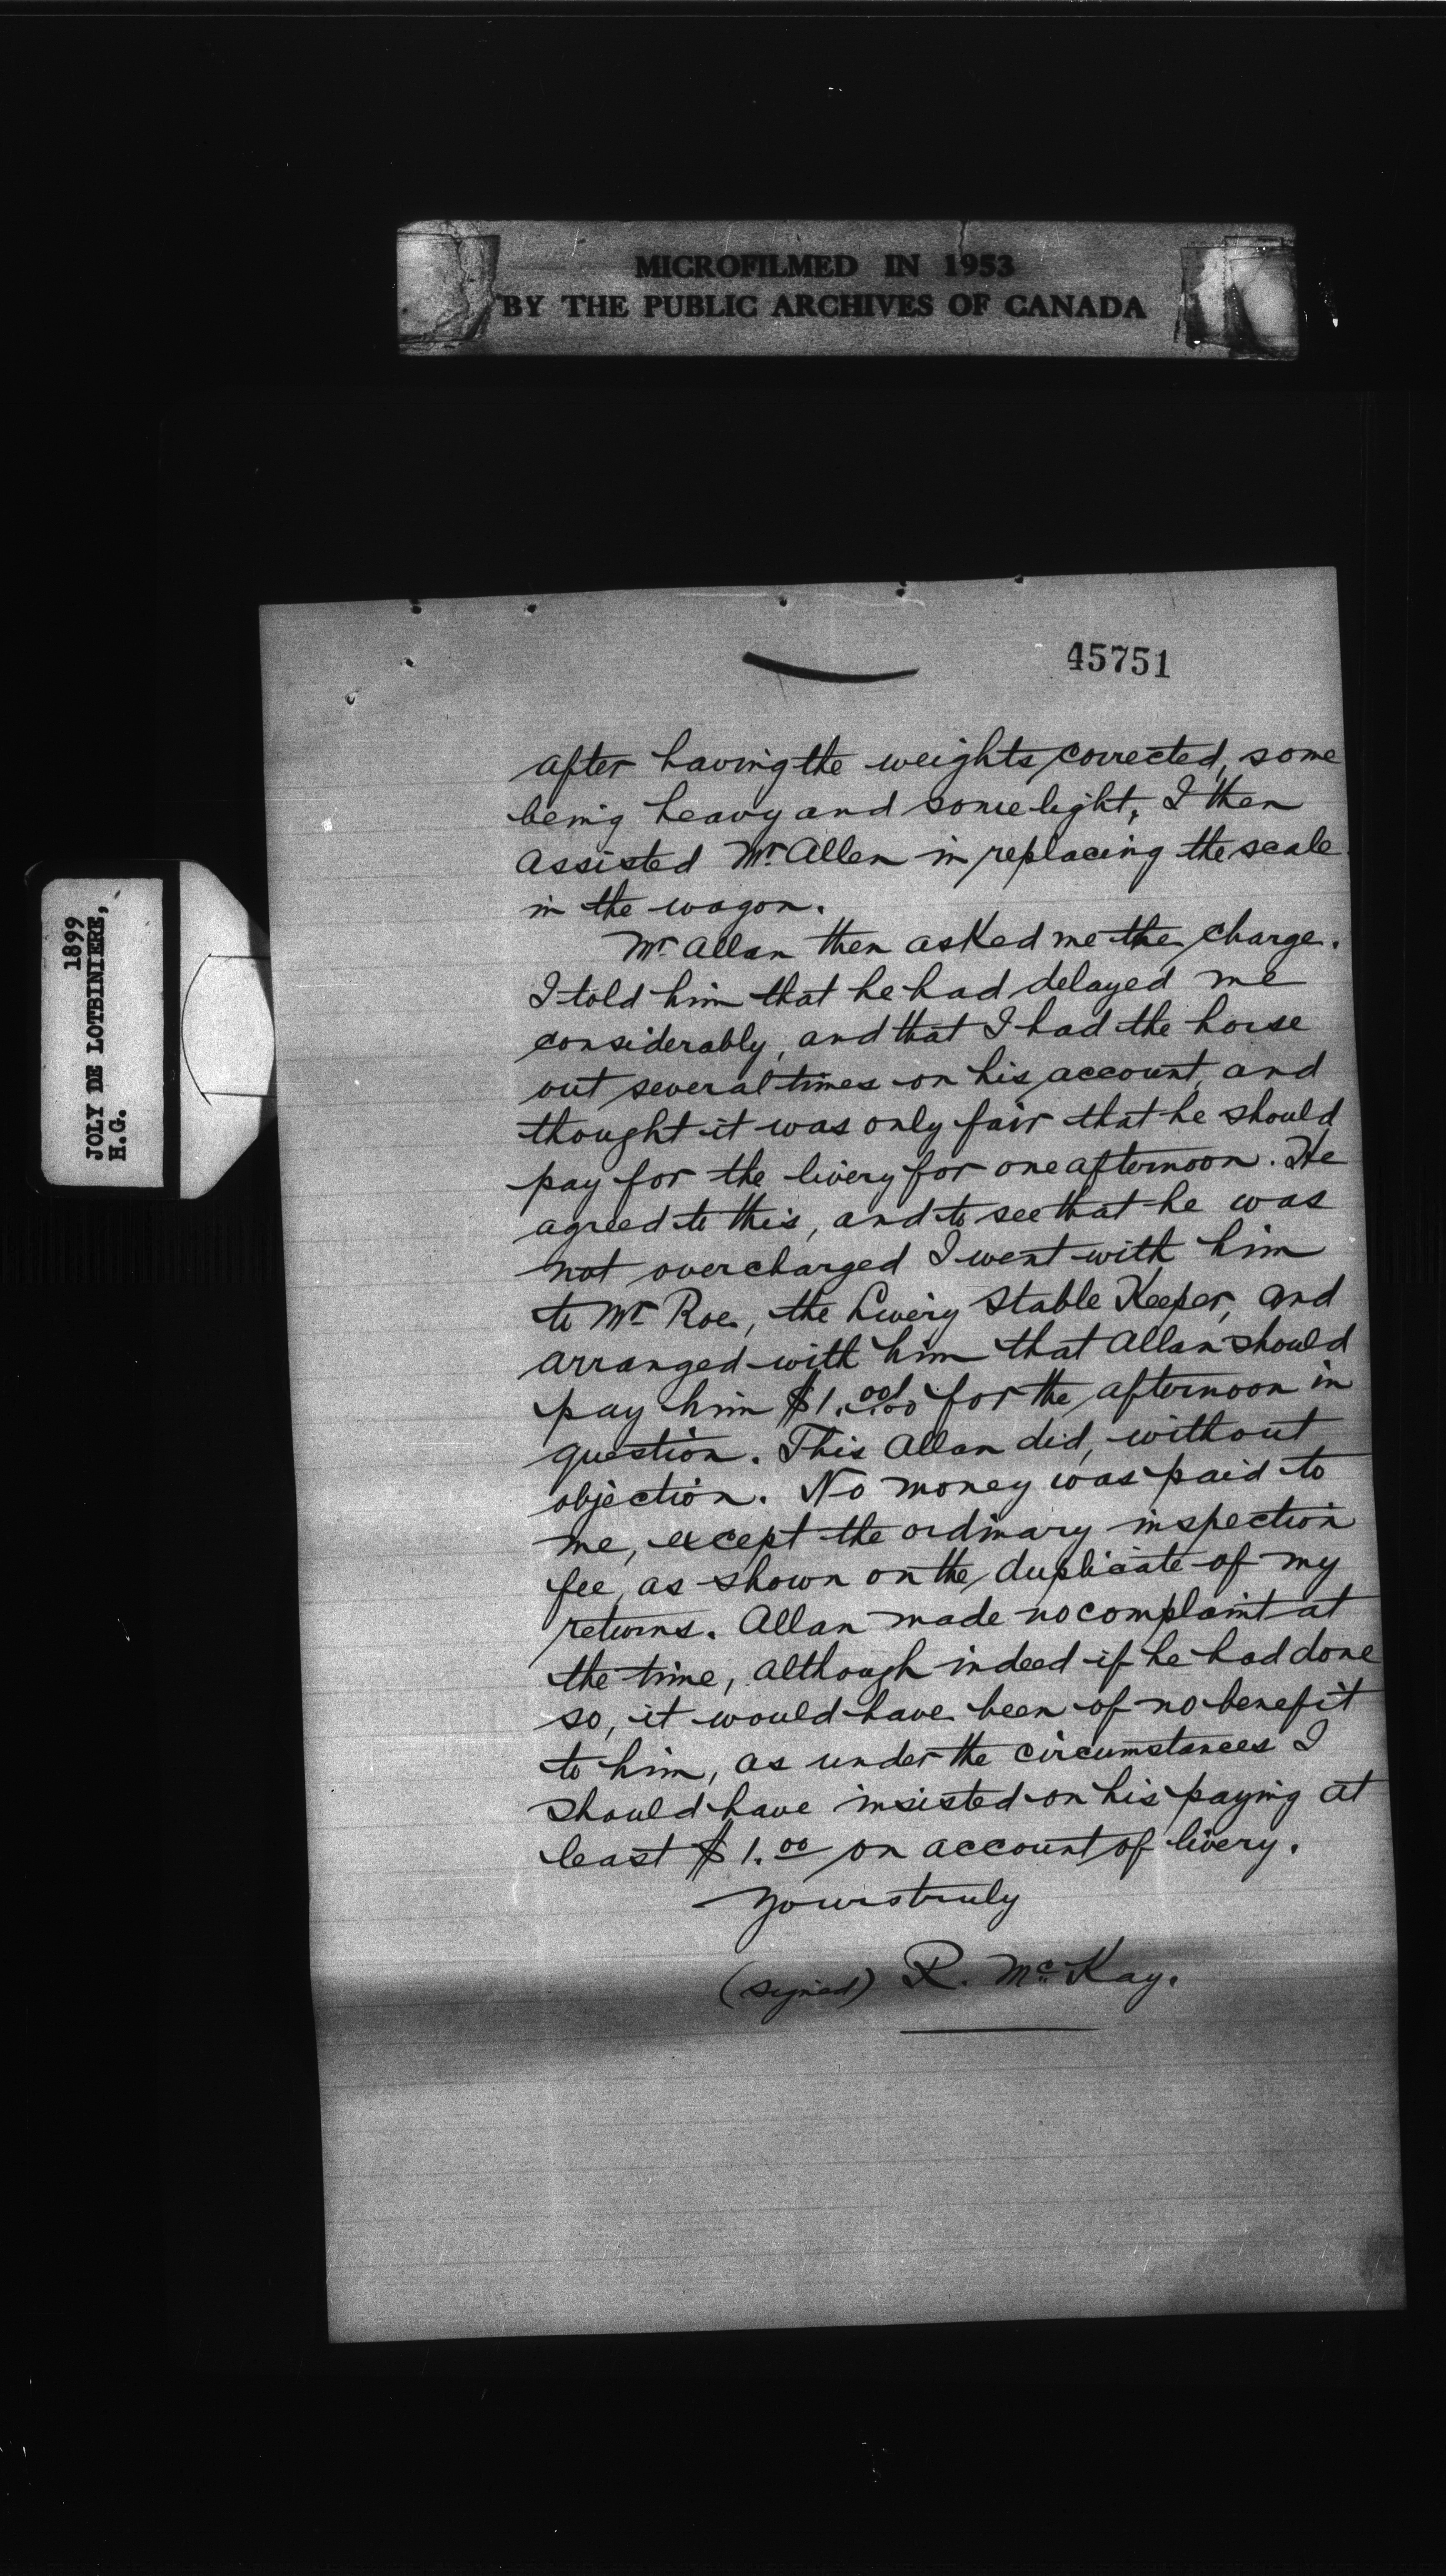 MICROFILMED IN 1953
BY THE PUBLIC ARCHIVES OF CANADA
1899
JOLY DE LOTBINIERE,
H.G.
45751
after having the weights corrected, some
being heavy and some light, I then
assisted Mr. Allen in replacing the scale
in the wagon.
Mr Allan then asked me the charge.
I told him that he had delayed me
considerably, and that I had the horse
out several times on his account, and
thought it was only fair that he should
pay for the livery for one afternoon. He
agreed to this, and to see that he was
not overcharged I went with him
to Mr Roe, the Livery Stable Keeper, and
arranged with him that Allan should
pay him $1.00 for the afternoon in
question. This Allan did, without
objection. No money was paid to
me, except the ordinary inspection
fee, as shown on the duplicate of my
returns. Allan made no complaint at
the time, although indeed if he had done
so, it would have been of no benefit
to him, as under the circumstances I
should have insisted on his paying at
least $1.00 on account of livery.
Yours truly
(signed) R. McKay.